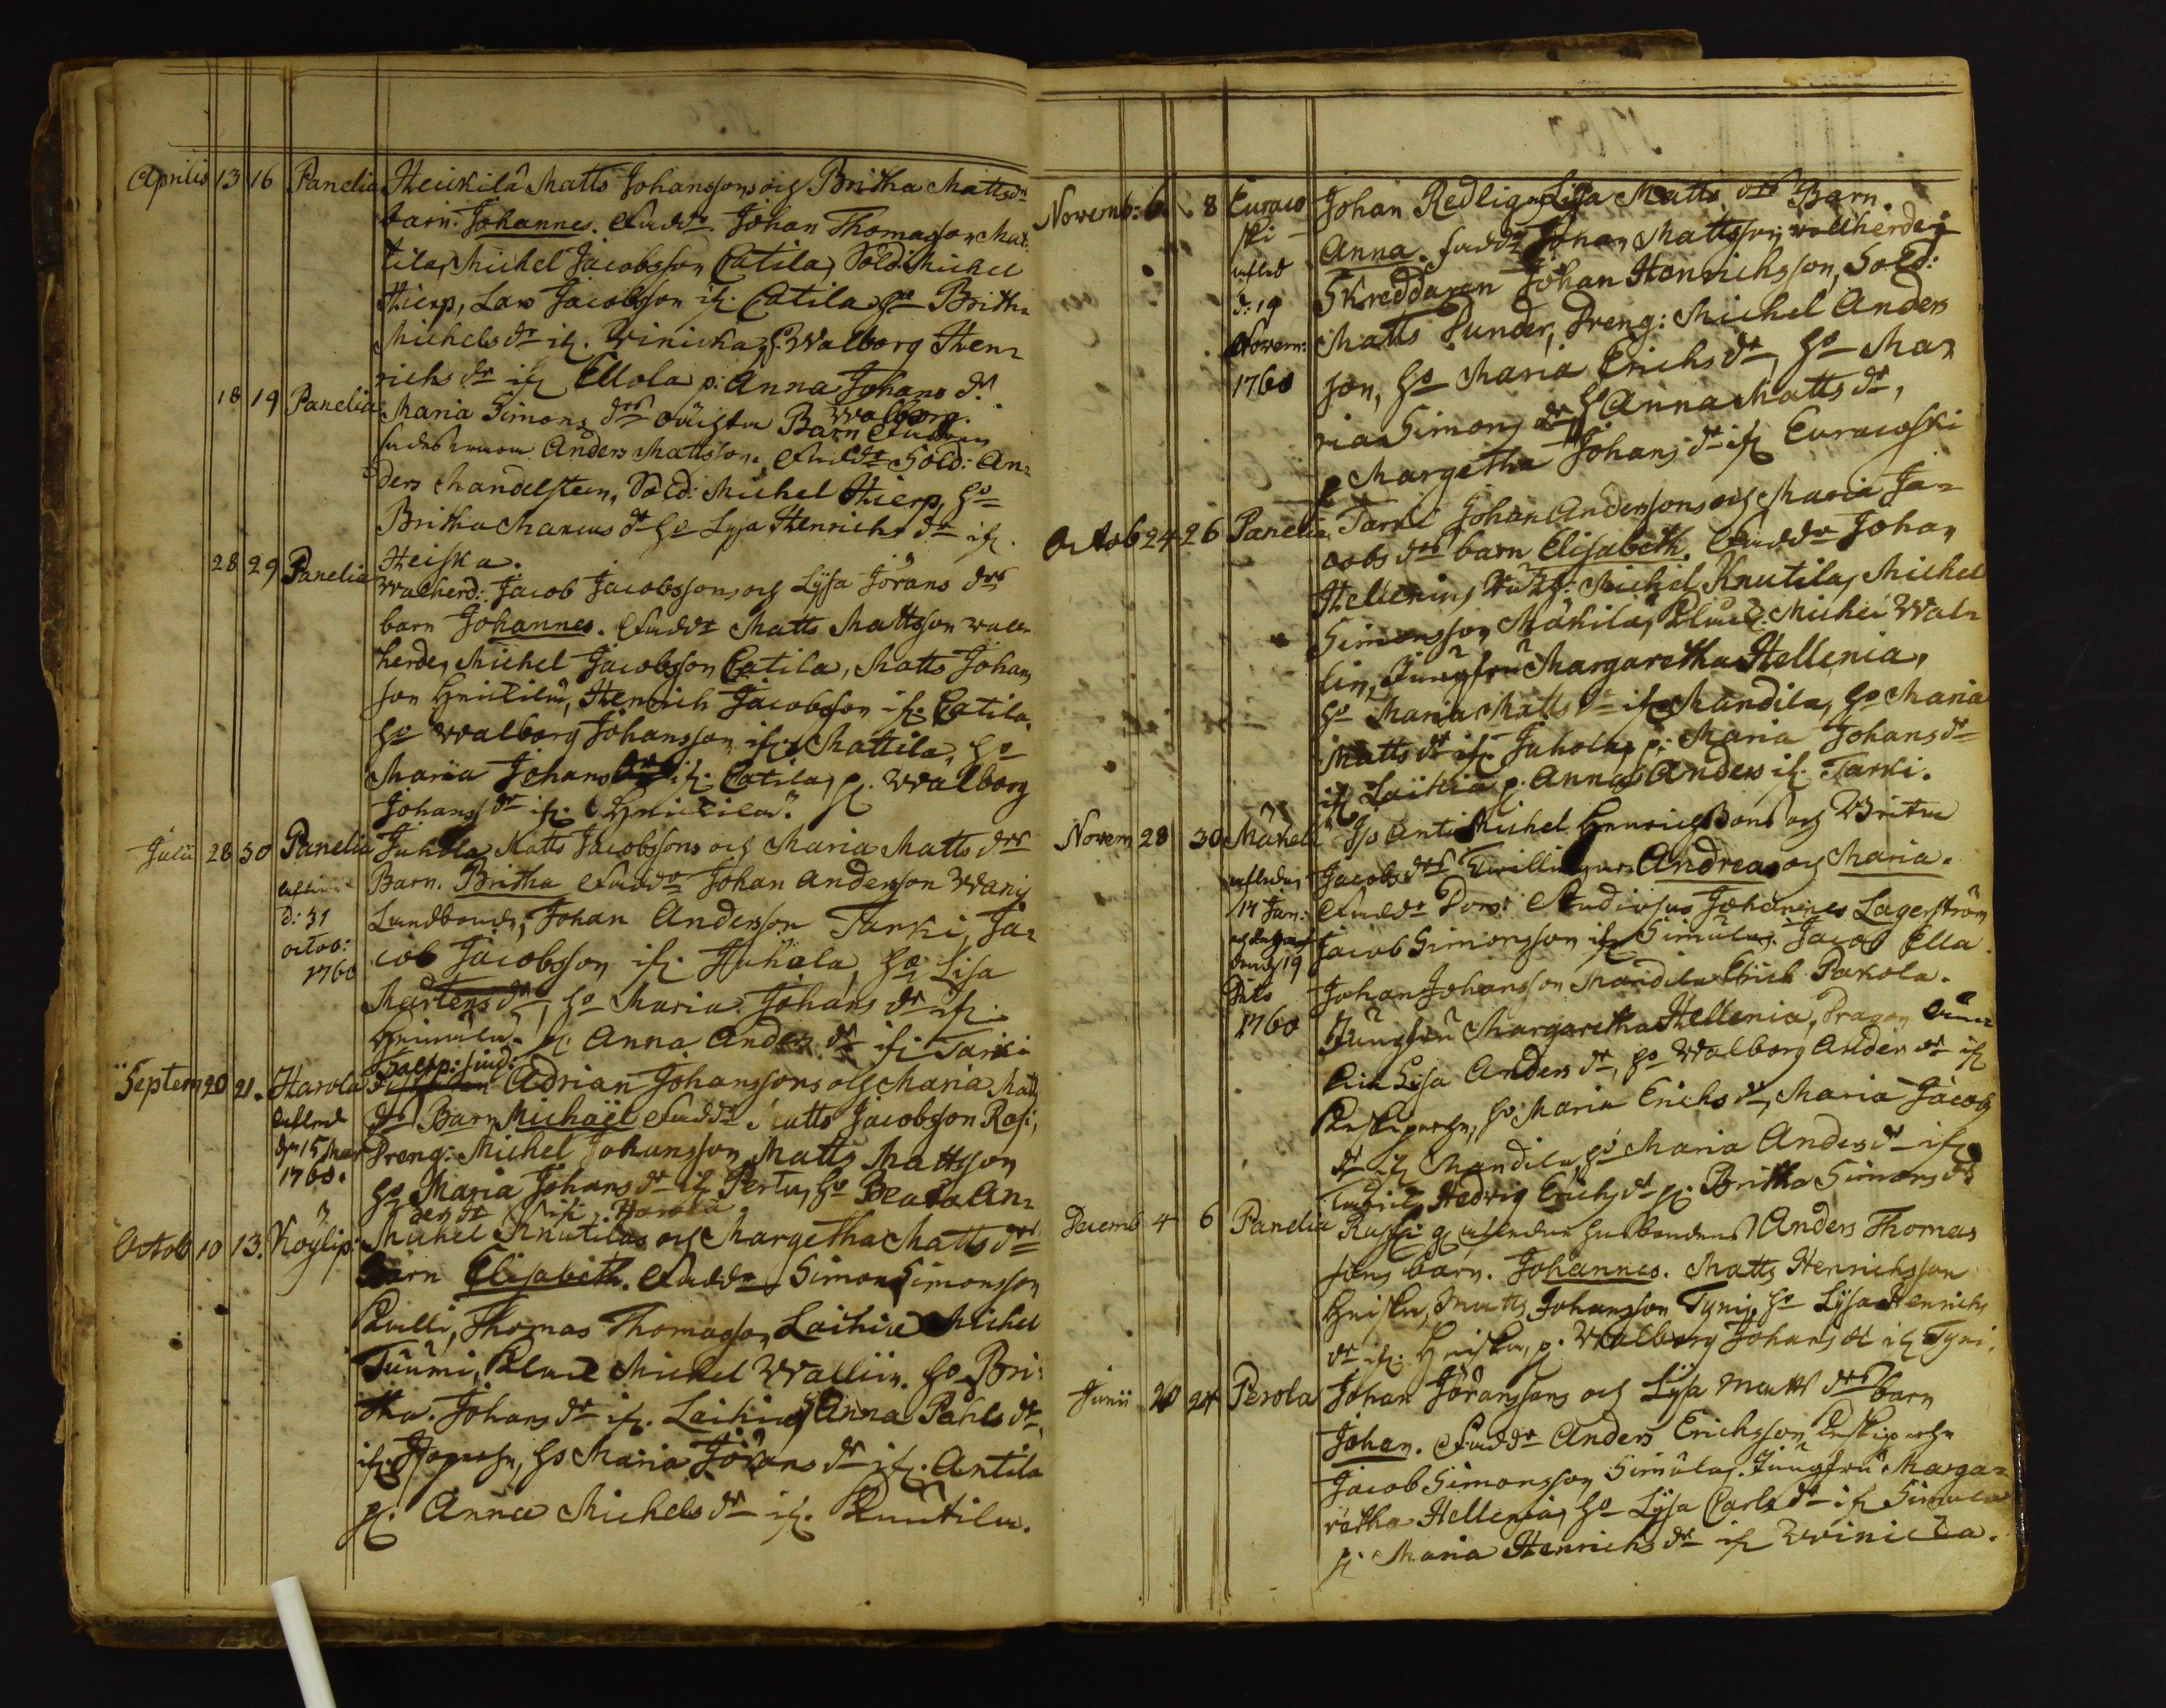 Aprilis 13 16 Panelia Heickilä Matts Johanssons och Britha Mattsdrs
barn. Johannes. Faddr. Johan Thomasson Mat-
tila, Michel Jacobsson Catila, Sold: Michel
Hierp, Lars Jacobsson if. Catila, ho Britha
Michelsdr if. Vinicka, Walborg Hen-
richsdr if Ellola p: Anna Johansdr.
18 19 Panelia Maria Simons drs oächta Barn Walborg.
Anders Mattsson. Faddr Sold: An-
ders Mandelsteen, Sold: Michel Hierp, ho
Britha Marcusdr ho Lysa Henrichsdr if.
Heiska.
28 29 Panelia Wallherd: Jacob Jacobssons och Lÿsa Jörans drs
barn Johannes. Faddr Matts Mattsson vall-
herde, Michel Jacobsson Catila, Matts Johans
son Heickilä, Henrich Jacobsson if. Catila.
ho Walborg Johansson if. Mattila, ho
Maria Johans dr if. Catila, p. Walborg
Johansdr if. Heickilä.
Julii 28 30 Panelia Juhola Matts Jacobssons och Maria Matts drs
Barn. Britha Faddr Johan Anderson Wanÿ
d: 31 Landbonde, Johan Andersson Tarki, Ja-
octob: cob Jacobsson if. Juhola, ho Lisa
1760
Mårtensdr, ho Maria Johansdr if.
p. Anna Andersdr if. Tarki
Septem 20 21. Harola Adrian Johanssons och Maria Matts
drs Barn Michaël Faddr Matts Jacobsson Rasi,
d 15 Mar Dreng: Michel Johansson Matts Mattsson
1760. ho Maria Johansdr if Pertu, ho Beata An-
dersdr if: Harola
Octob 10 13. Köÿlip: Michel Knutilas och Margetha Matts drs
Barn Elisabeth. Faddr Simon Simonsson
Thomas Thomasson Laihia Michel
Tuumi, Michel Wallin. ho Bri-
tha. Johansdr if. Laihia, Anna Påhlsdr,
if. ho Maria Jöransdr if. Antila
p. Anna Michelsdr if. Knuutila.
Novemb: 6. 8 Euracoski Johan Redlig och Lisa Matts drs Barn.
Anna. Faddr Johan Mattsson vallherde
Skreddaren Johan Henrichsson, Sold:
d: 19 Matts Punder, Dreng: Michel Anders
Novem: son, ho Maria Erichsdr, ho Ma-
1760 ria Simonsdr ho Anna Mattsdr,
p Margetha Johansdr if Euracoski
Octob 24 26 Panelia Tarki Johan Anderssons och Maria Ja-
cobs drs barn Elisabeth. Faddr Johan
Hellenius, Michel Knutila, Michel
Simonsson Mäkilä, Michel Wal-
lin, Jungfru Margaretha Hellenia,
ho Maria Mattsdr if Mandila, ho Maria
Mattsdr if. Juhola, p: Maria Johansdr
if Laihia p. Anna Anders if. Tarki.
Novem 28 30 Mäkelä Iso Antti Michel Henrichssons och Brita
Jacobs drs Tvillingar Andreas och Maria.
14 Jan: Faddr Studiosus Johannes Lagerström
Jacob Simonsson if Simula. Jacob Ella
19 Johan Johansson Mandila Erich Pakola.
1760 Jungfru Margaretha Hellenia, Dragon
Lisa Andersdr, ho Walborg Andersdr if
ho Maria Erichsdr, Maria Jacobs
dr if Mandila, ho Maria Andersdr if
Hedvig Erichsdr p. Britha Simonsdr
Decemb 4 6 Panelia Anders Thomas
sons barn. Johannes. Matts Henrichsson
Heiska, Matts Johansson Tyni, ho Lysa Henrichs
dr if. Heiska, p. Walborg Johansdr if Tyni.
Junii 20 24 Perola Johan Jöranssons och Lysa Matts drs barn
Johan. Faddr Anders Erichsson
Jacob Simonsson Simula. Jungfru Marga-
retha Hellenia, ho Lysa Carlsdr if Simula
p: Maria Henrichsdr if Vinicka.